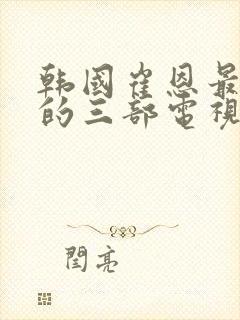 韩國崔恩最
的三部電視
閆亮